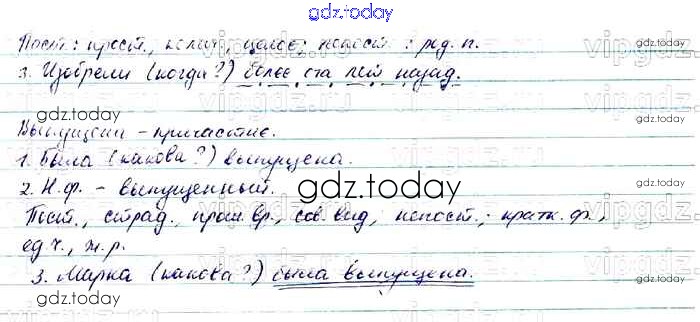 gdz.today
Пост.: прост., колич., целое; непост.: род. п.
3. Изобрели (когда?) более ста лет назад.
gdz.today
Выпущена – причастие.
1. Была (какова?) выпущена.
2. Н.ф. – выпущенный.
gdz.today
Пост., страд., прош. вр., сов. вид, непост.: кратк. ф.,
ед.ч., ж.р.
3. Марка (какова?) была выпущена.
gdz.today
gdz.today